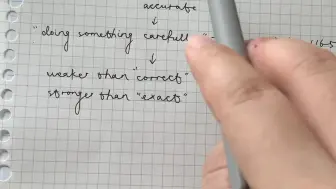 accurate
↓
"doing something carefull
↓
weaker than "correct"
stronger than "exact"
1165